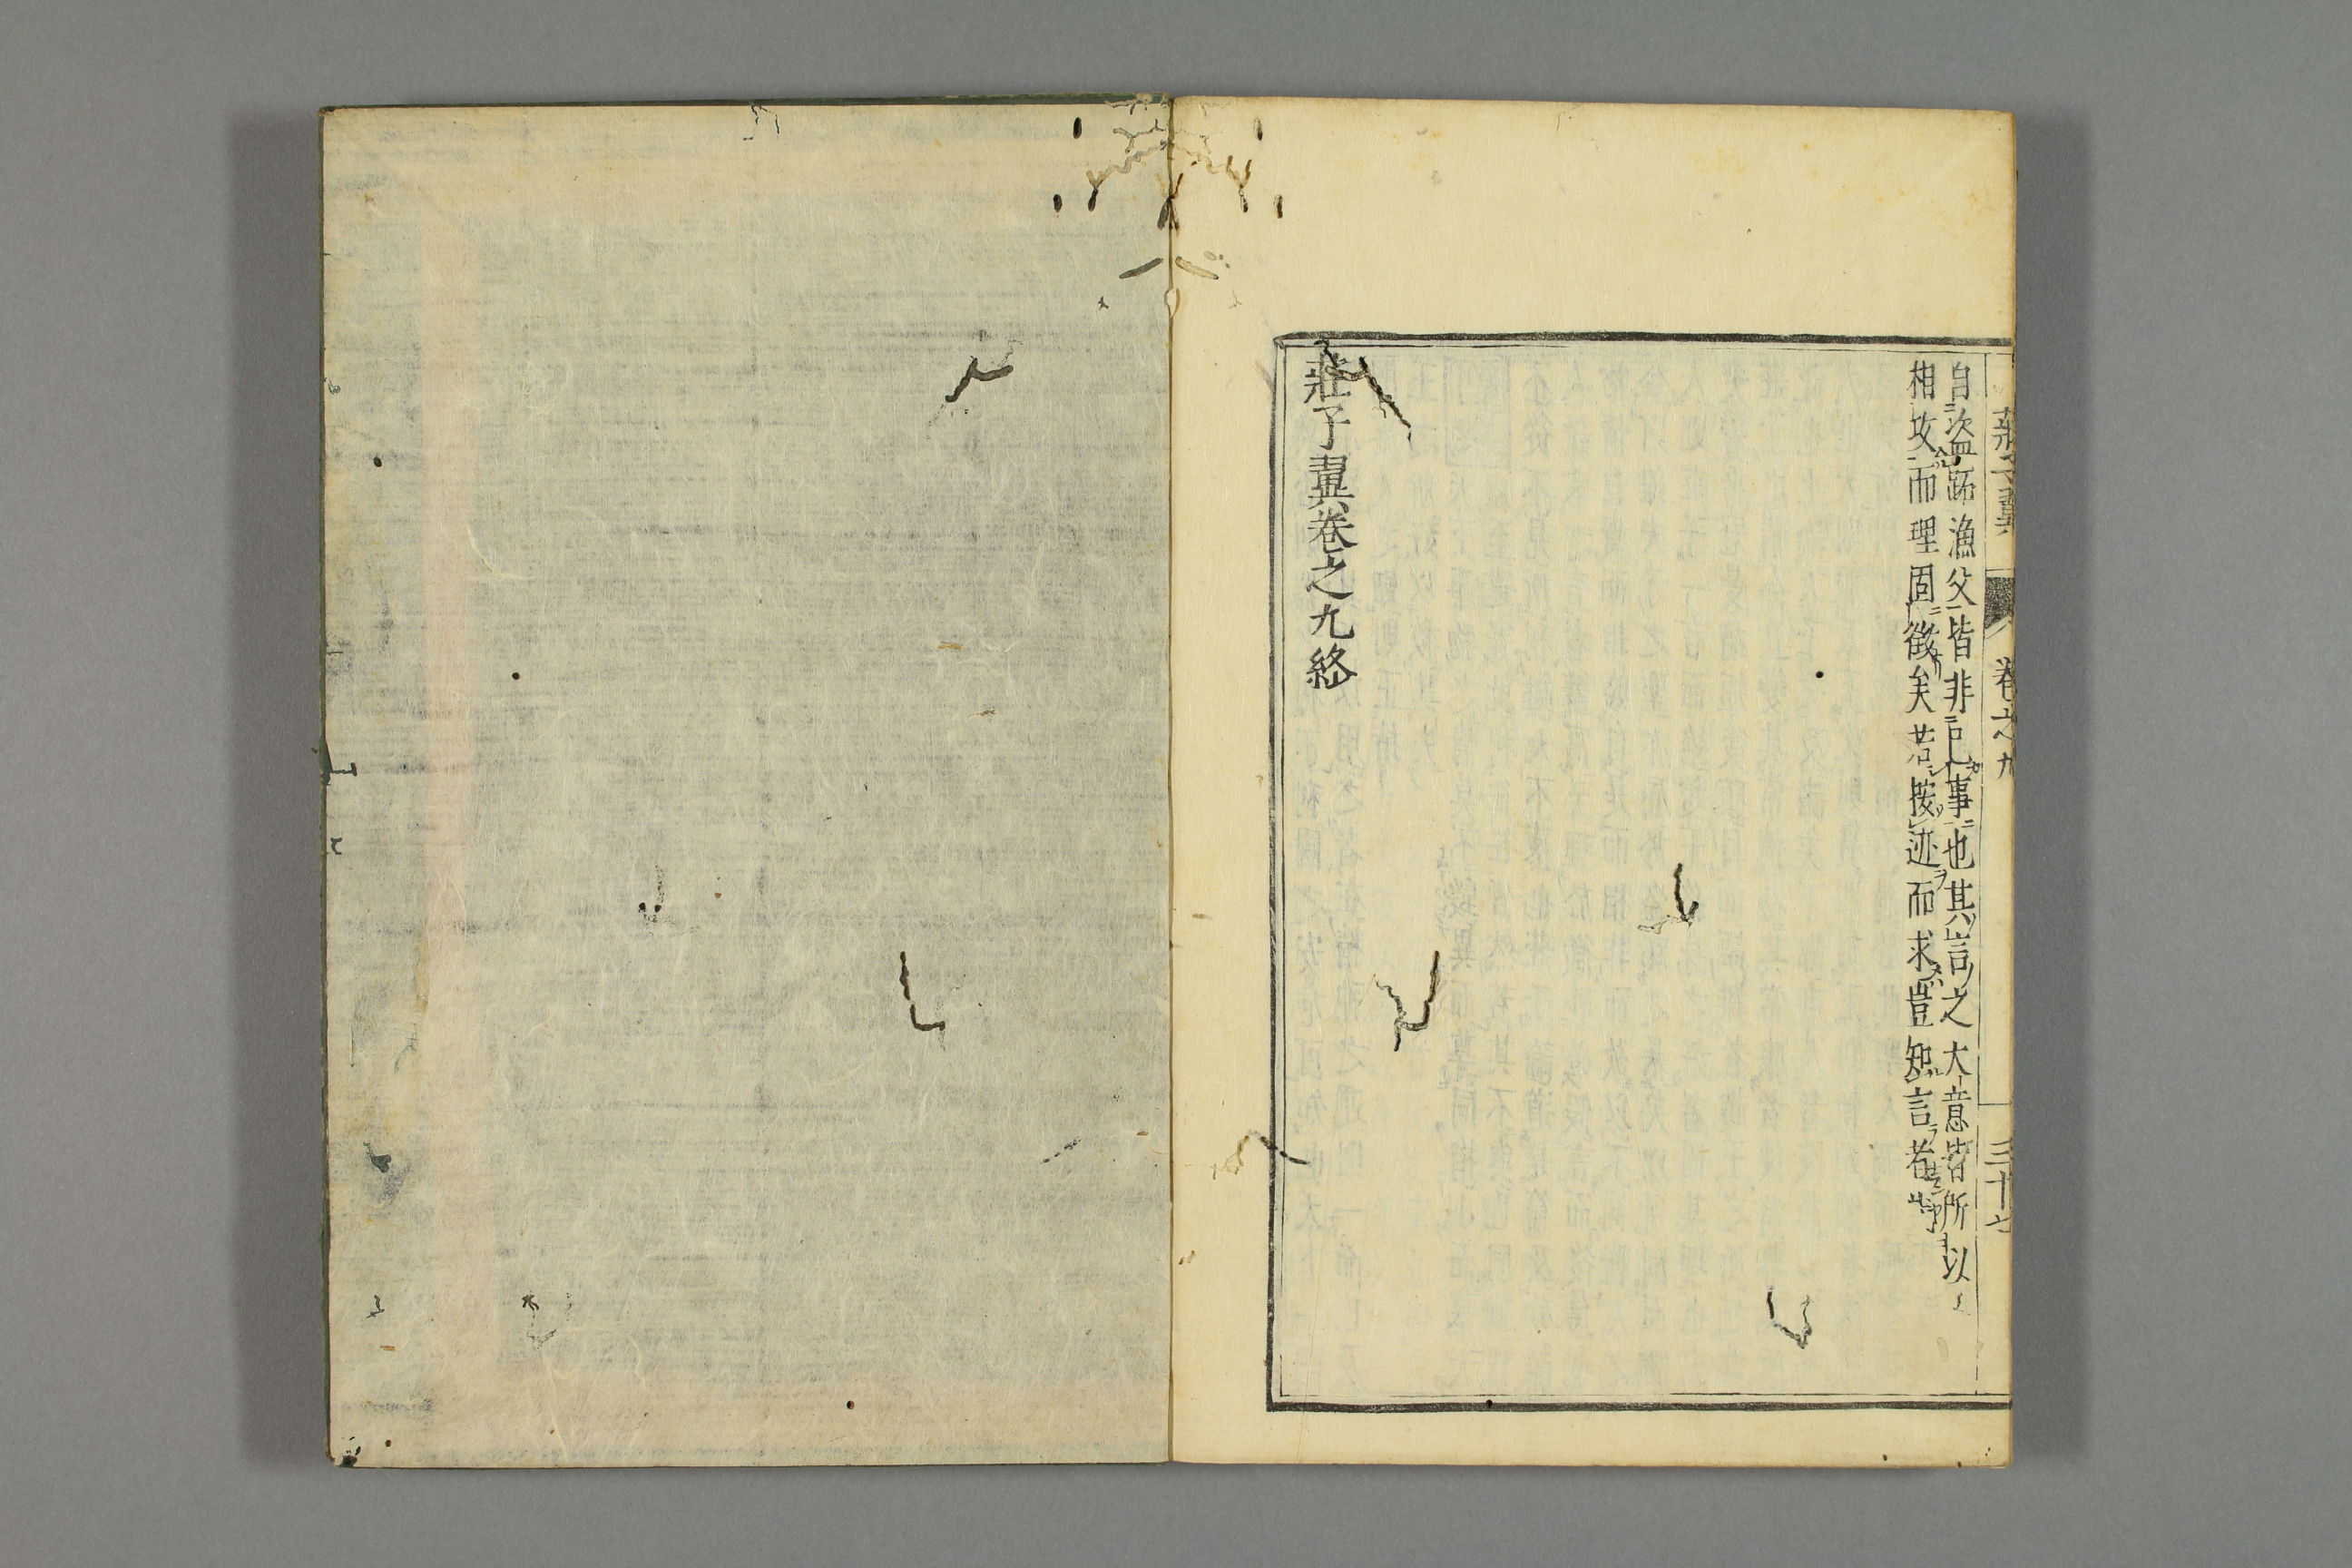 莊子翼 卷之九 三十七
自盜跖漁父皆非己事也其言之大意皆所以
相攻而理固徵矣若按迹而求豈知言者
莊子翼卷之九終